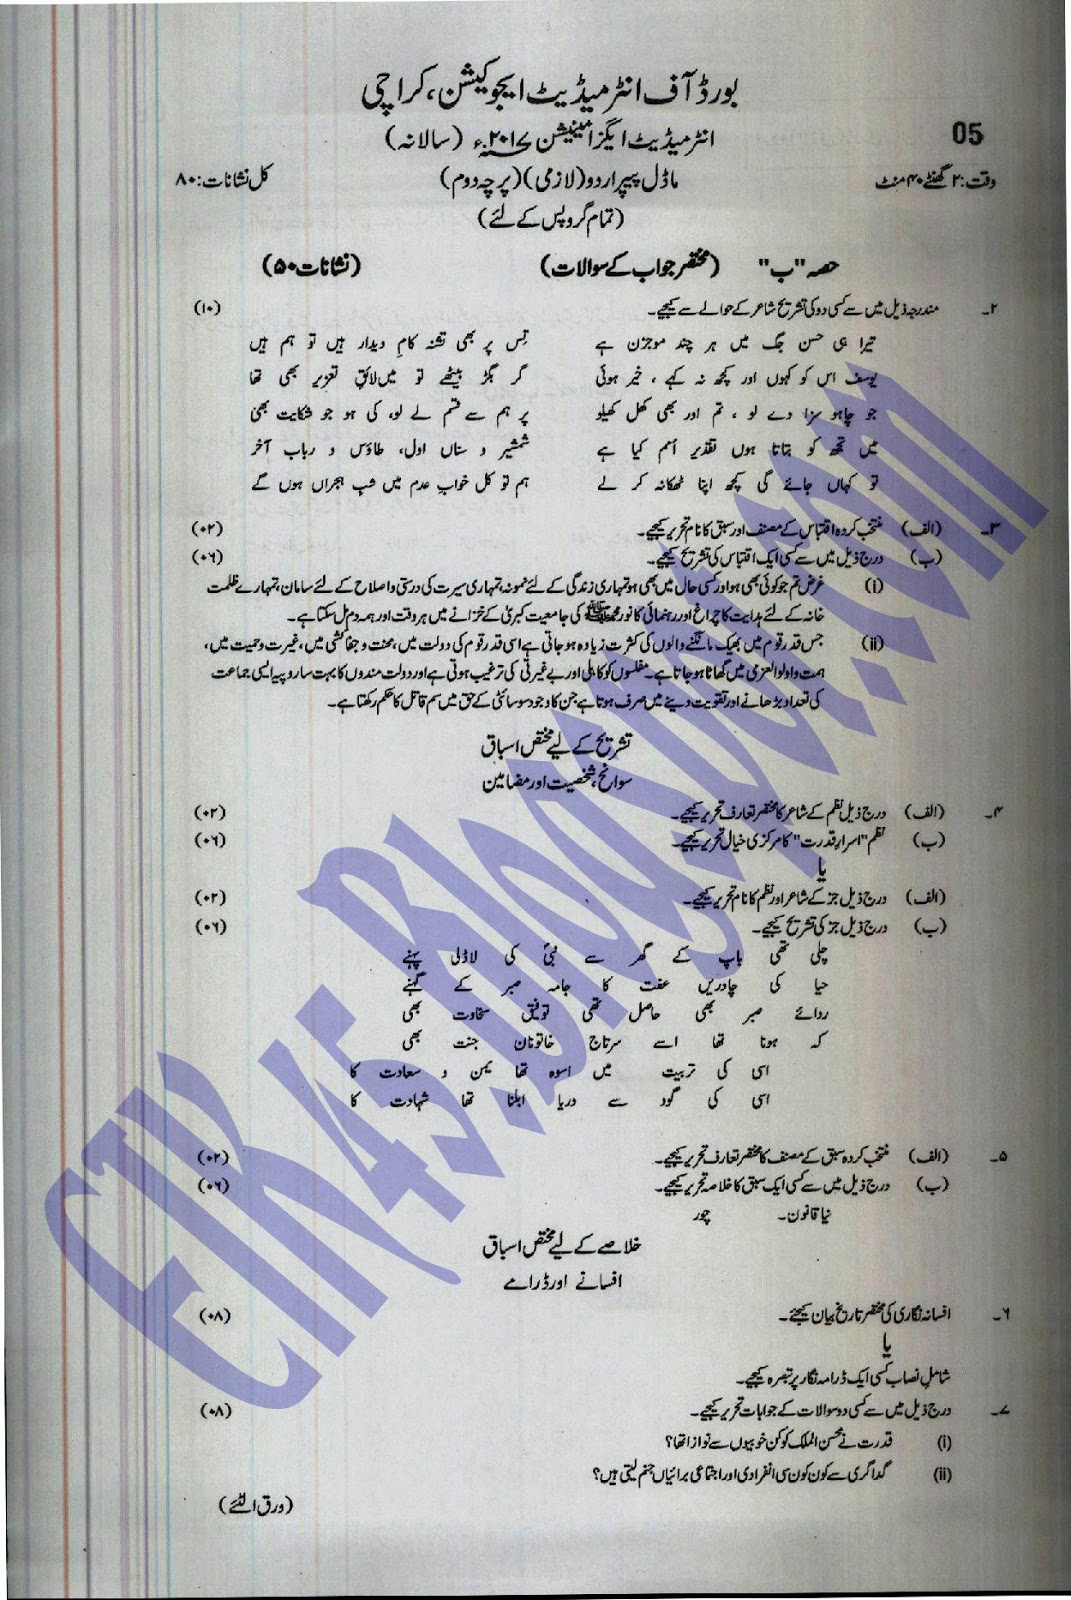 بورڈ آف انٹرمیڈیٹ ایجوکیشن، کراچی
05
انٹرمیڈیٹ ایگزامینیشن ۲۰۱۷ء (سالانہ)
وقت: ۲ گھنٹے ۴۰ منٹ ماڈل پیپر اردو (لازمی) (پرچہ دوم) کل نشانات: ۸۰
(تمام گروپس کے لئے)
حصہ "ب" (مختصر جواب کے سوالات) (نشانات ۵۰)
۲۔ مندرجہ ذیل میں سے کسی دو کی تشریح شاعر کے حوالے سے کیجیے۔ (۱۰)
تیرا ہی حسن جگ میں ہر چند موجزن ہے تِس پر بھی تشنہ کامِ دیدار ہیں تو ہم ہیں
یوسف اس کو کہوں اور کچھ نہ کہے ، خیر ہوئی گر بگڑ بیٹھے تو میں لائقِ تعزیر بھی تھا
جو چاہو سزا دے لو ، تم اور بھی کھل کھیلو پر ہم سے قسم لے لو، کی ہو جو شکایت بھی
میں تجھ کو بتاتا ہوں تقدیرِ اُمم کیا ہے شمشیر و سناں اول، طاؤس و رباب آخر
تو کہاں جائے گی کچھ اپنا ٹھکانہ کر لے ہم تو کل خوابِ عدم میں شبِ ہجراں ہوں گے
۳۔ (الف) منتخب کردہ اقتباس کے مصنف اور سبق کا نام تحریر کیجیے۔ (۰۲)
(ب) درج ذیل میں سے کسی ایک اقتباس کی تشریح کیجیے۔ (۰۶)
(i) غرض تم جو کوئی بھی ہو اور کسی حال میں بھی ہو تمہاری زندگی کے لئے نمونہ، تمہاری سیرت کی درستی و اصلاح کے لئے سامان، تمہارے ظلمت
خانہ کے لئے ہدایت کا چراغ اور رہنمائی کا نور محمد ﷺ کی جامعیت کبریٰ کے خزانے میں ہر وقت اور ہمہ دم مل سکتا ہے۔
(ii) جس قدر قوم میں بھیک مانگنے والوں کی کثرت زیادہ ہو جاتی ہے اسی قدر قوم کی دولت میں، محنت و جفاکشی میں، غیرت و حمیت میں،
ہمت و اولو العزمی میں گھاٹا ہو جاتا ہے۔ مفلسوں کو کاہلی اور بے غیرتی کی ترغیب ہوتی ہے اور دولت مندوں کا بہت سا روپیہ ایسی جماعت
کی تعداد بڑھانے اور تقویت دینے میں صرف ہوتا ہے جن کا وجود سوسائٹی کے حق میں سم قاتل کا حکم رکھتا ہے۔
تشریح کے لیے مختص اسباق
سوانح، شخصیت اور مضامین
۴۔ (الف) درج ذیل نظم کے شاعر کا مختصر تعارف تحریر کیجیے۔ (۰۲)
(ب) نظم "اسرارِ قدرت" کا مرکزی خیال تحریر کیجیے۔ (۰۶)
یا
(الف) درج ذیل جز کے شاعر اور نظم کا نام تحریر کیجیے۔ (۰۲)
(ب) درج ذیل جز کی تشریح کیجیے۔ (۰۶)
چلی تھی باپ کے گھر سے نبیؐ کی لاڈلی پہنے
حیا کی چادریں عفت کا جامہ صبر کے گہنے
ردائے صبر بھی حاصل تھی توفیق سخاوت بھی
کہ ہونا تھا اسے سرتاجِ خاتونان جنت بھی
اسی کی تربیت میں اسوہ تھا یمن و سعادت کا
اسی کی گود سے دریا ابلنا تھا شہادت کا
۵۔ (الف) منتخب کردہ سبق کے مصنف کا مختصر تعارف تحریر کیجیے۔ (۰۲)
(ب) درج ذیل میں سے کسی ایک سبق کا خلاصہ تحریر کیجیے۔ (۰۶)
نیا قانون۔ چور
خلاصے کے لیے مختص اسباق
افسانے اور ڈرامے
۶۔ افسانہ نگاری کی مختصر تاریخ بیان کیجئے۔ (۰۸)
یا
شاملِ نصاب کسی ایک ڈرامہ نگار پر تبصرہ کیجیے۔
۷۔ درج ذیل میں سے کسی دو سوالات کے جوابات تحریر کیجیے۔ (۰۸)
(i) قدرت نے محسن الملک کو کن خوبیوں سے نوازا تھا؟
(ii) گداگری سے کون کون سی انفرادی اور اجتماعی برائیاں جنم لیتی ہیں؟
(ورق الٹئے)